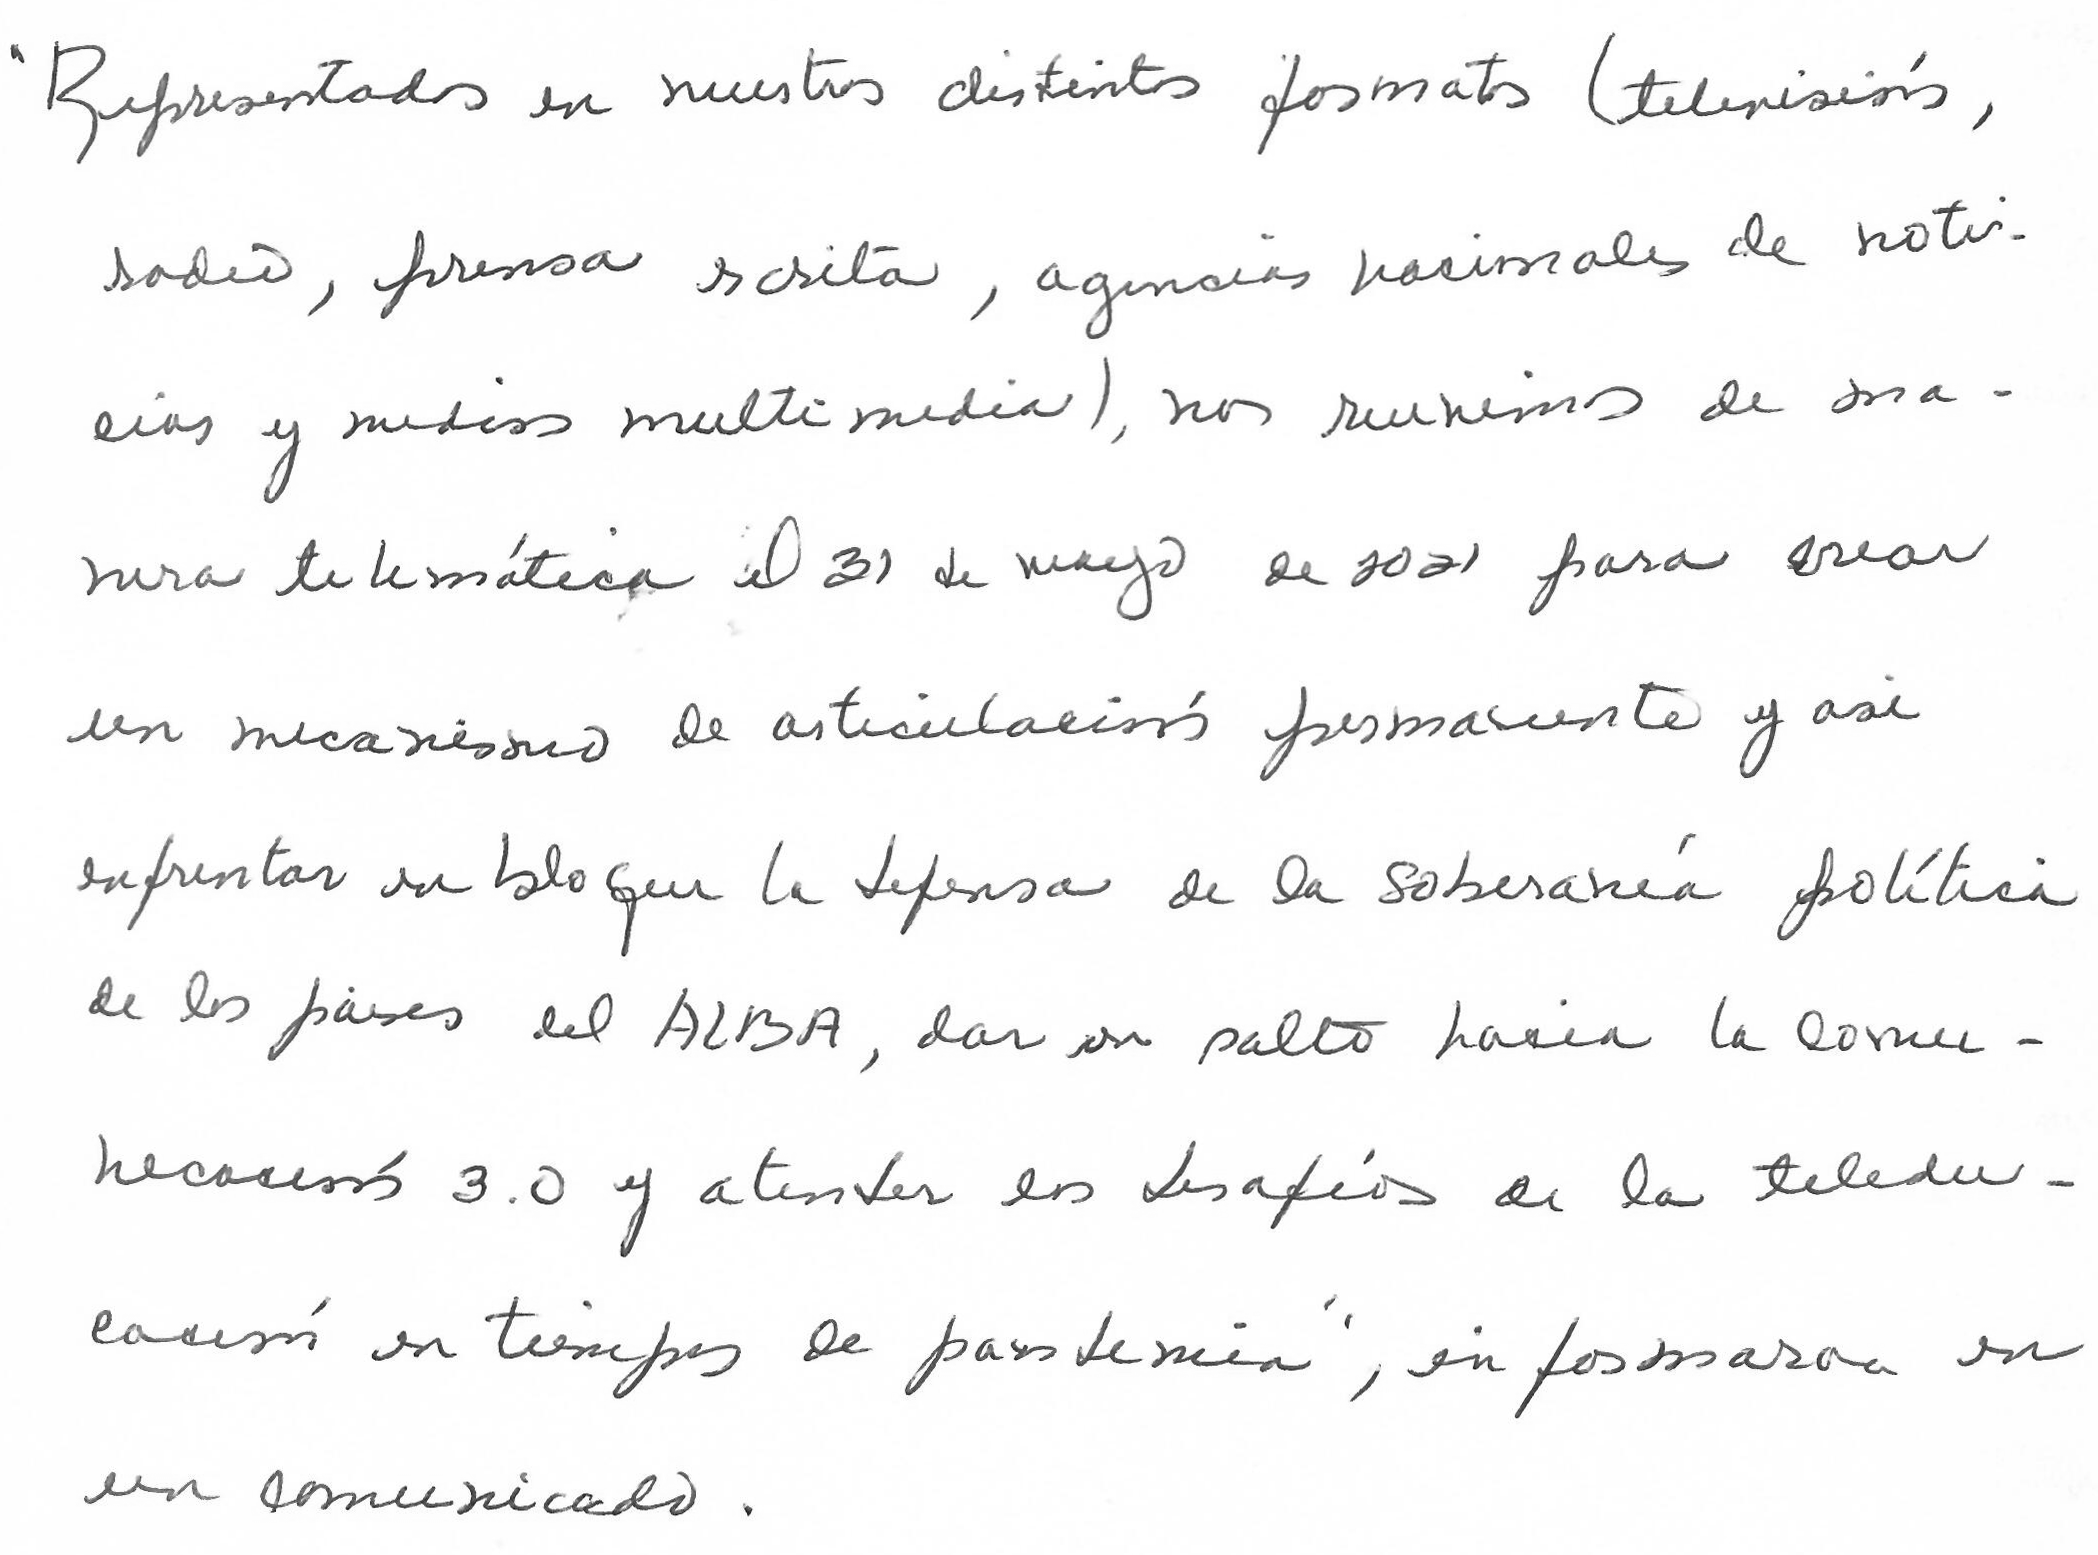 "Representados en nuestros distintos formatos (televisión,
radio, prensa escrita, agencias nacionales de noti-
cias y medios multimedia), nos reunimos de ma-
nera telemática el 31 de mayo de 2021 para crear
un mecanismo de articulación permanente y así
enfrentar en bloque la defensa de la soberanía política
de los países del ALBA, dar un salto hacia la comu-
nicación 3.0 y atender los desafíos de la teledu-
cación en tiempos de pandemia", informaron en
un comunicado.